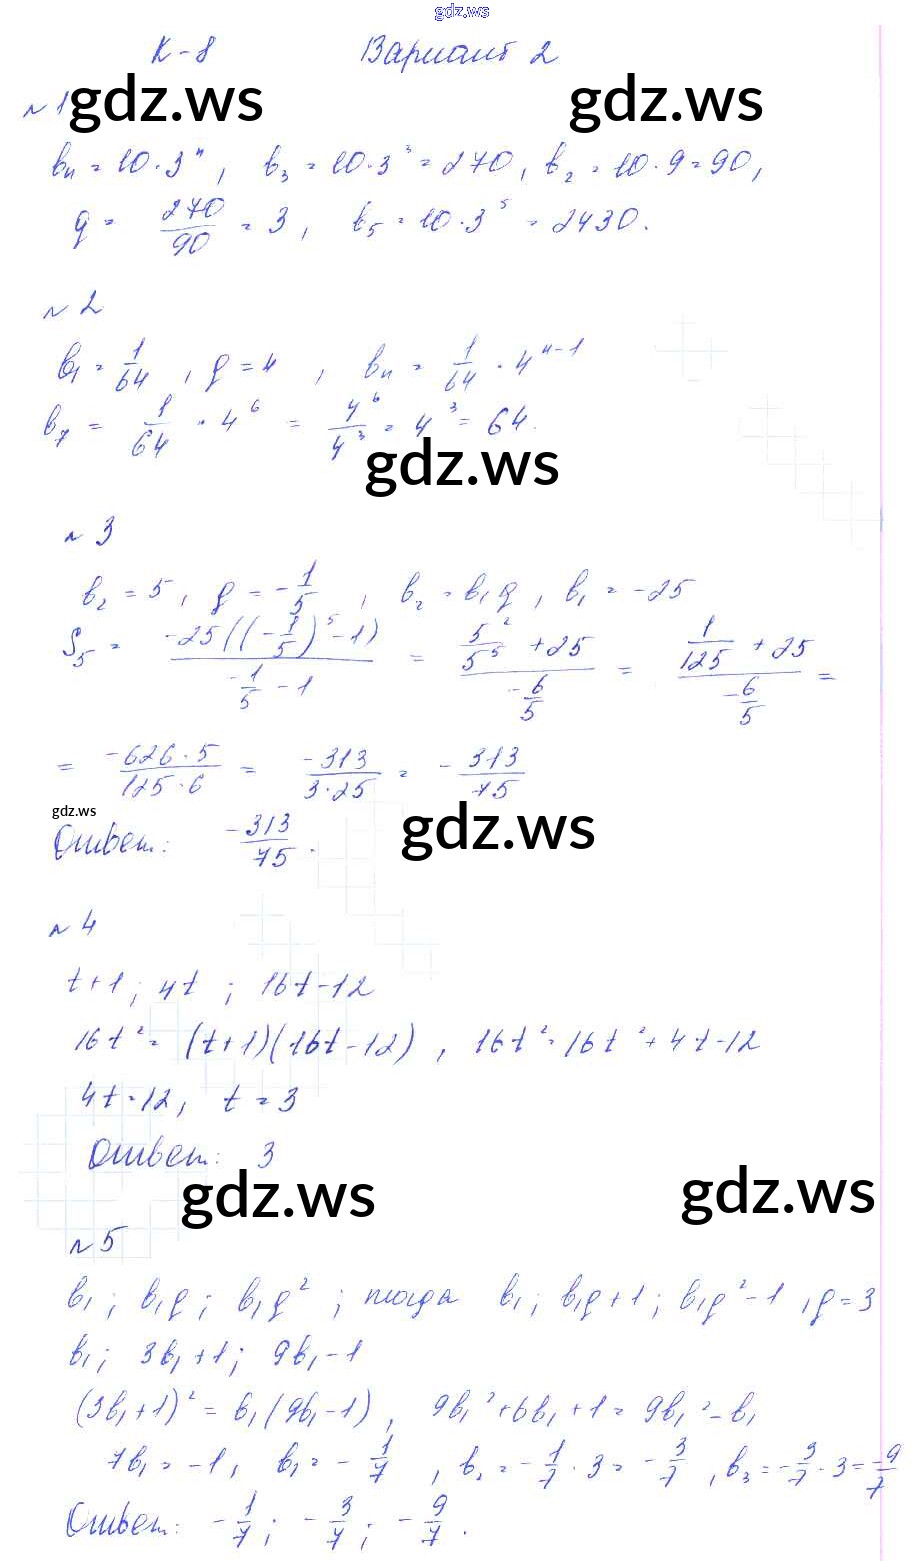 gdz.ws
К-8 Вариант 2
№1 gdz.ws gdz.ws
bₙ = 10·3ⁿ, b₃ = 10·3³ = 270, b₂ = 10·9 = 90,
q = 270/90 = 3, b₅ = 10·3⁵ = 2430.
№2
b₁ = 1/64, q = 4, bₙ = 1/64 · 4ⁿ⁻¹
b₇ = 1/64 · 4⁶ = 4⁶/4³ = 4³ = 64.
gdz.ws
№3
b₂ = 5, q = -1/5, b₂ = b₁q, b₁ = -25
S₅ = -25((-1/5)⁵-1)/(-1/5 - 1) = (5²/5⁵ + 25)/(-6/5) = (1/125 + 25)/(-6/5) =
= -626·5/125·6 = -313/3·25 = -313/75
gdz.ws gdz.ws
Ответ: -313/75.
№4
t+1; 4t; 16t-12
16t² = (t+1)(16t-12), 16t² = 16t² + 4t - 12
4t = 12, t = 3
Ответ: 3
gdz.ws gdz.ws
№5
b₁; b₁q; b₁q²; тогда b₁; b₁q+1; b₁q²-1, q=3
b₁; 3b₁+1; 9b₁-1
(3b₁+1)² = b₁(9b₁-1), 9b₁²+6b₁+1 = 9b₁²-b₁
7b₁ = -1, b₁ = -1/7, b₂ = -1/7·3 = -3/7, b₃ = -3/7·3 = -9/7
Ответ: -1/7; -3/7; -9/7.